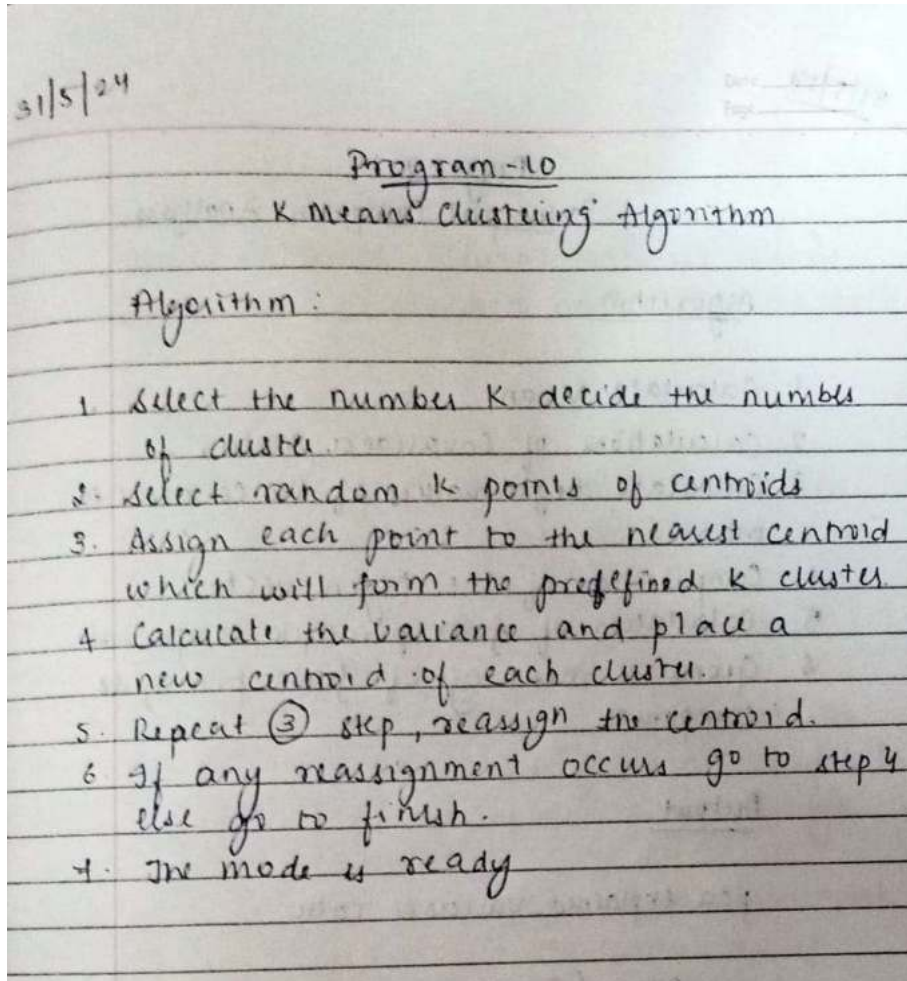 31/5/24
Date
Page
Program-10
K Means Clustering Algorithm
Algorithm :
1 Select the number K decide the number
of cluster
2. Select random K points of centroids
3. Assign each point to the nearest centroid
which will form the predefined K cluster
4 Calculate the variance and place a
new centroid of each cluster.
5. Repeat ③ step, reassign the centroid.
6 If any reassignment occurs go to step 4
else go to finish.
7. The mode is ready